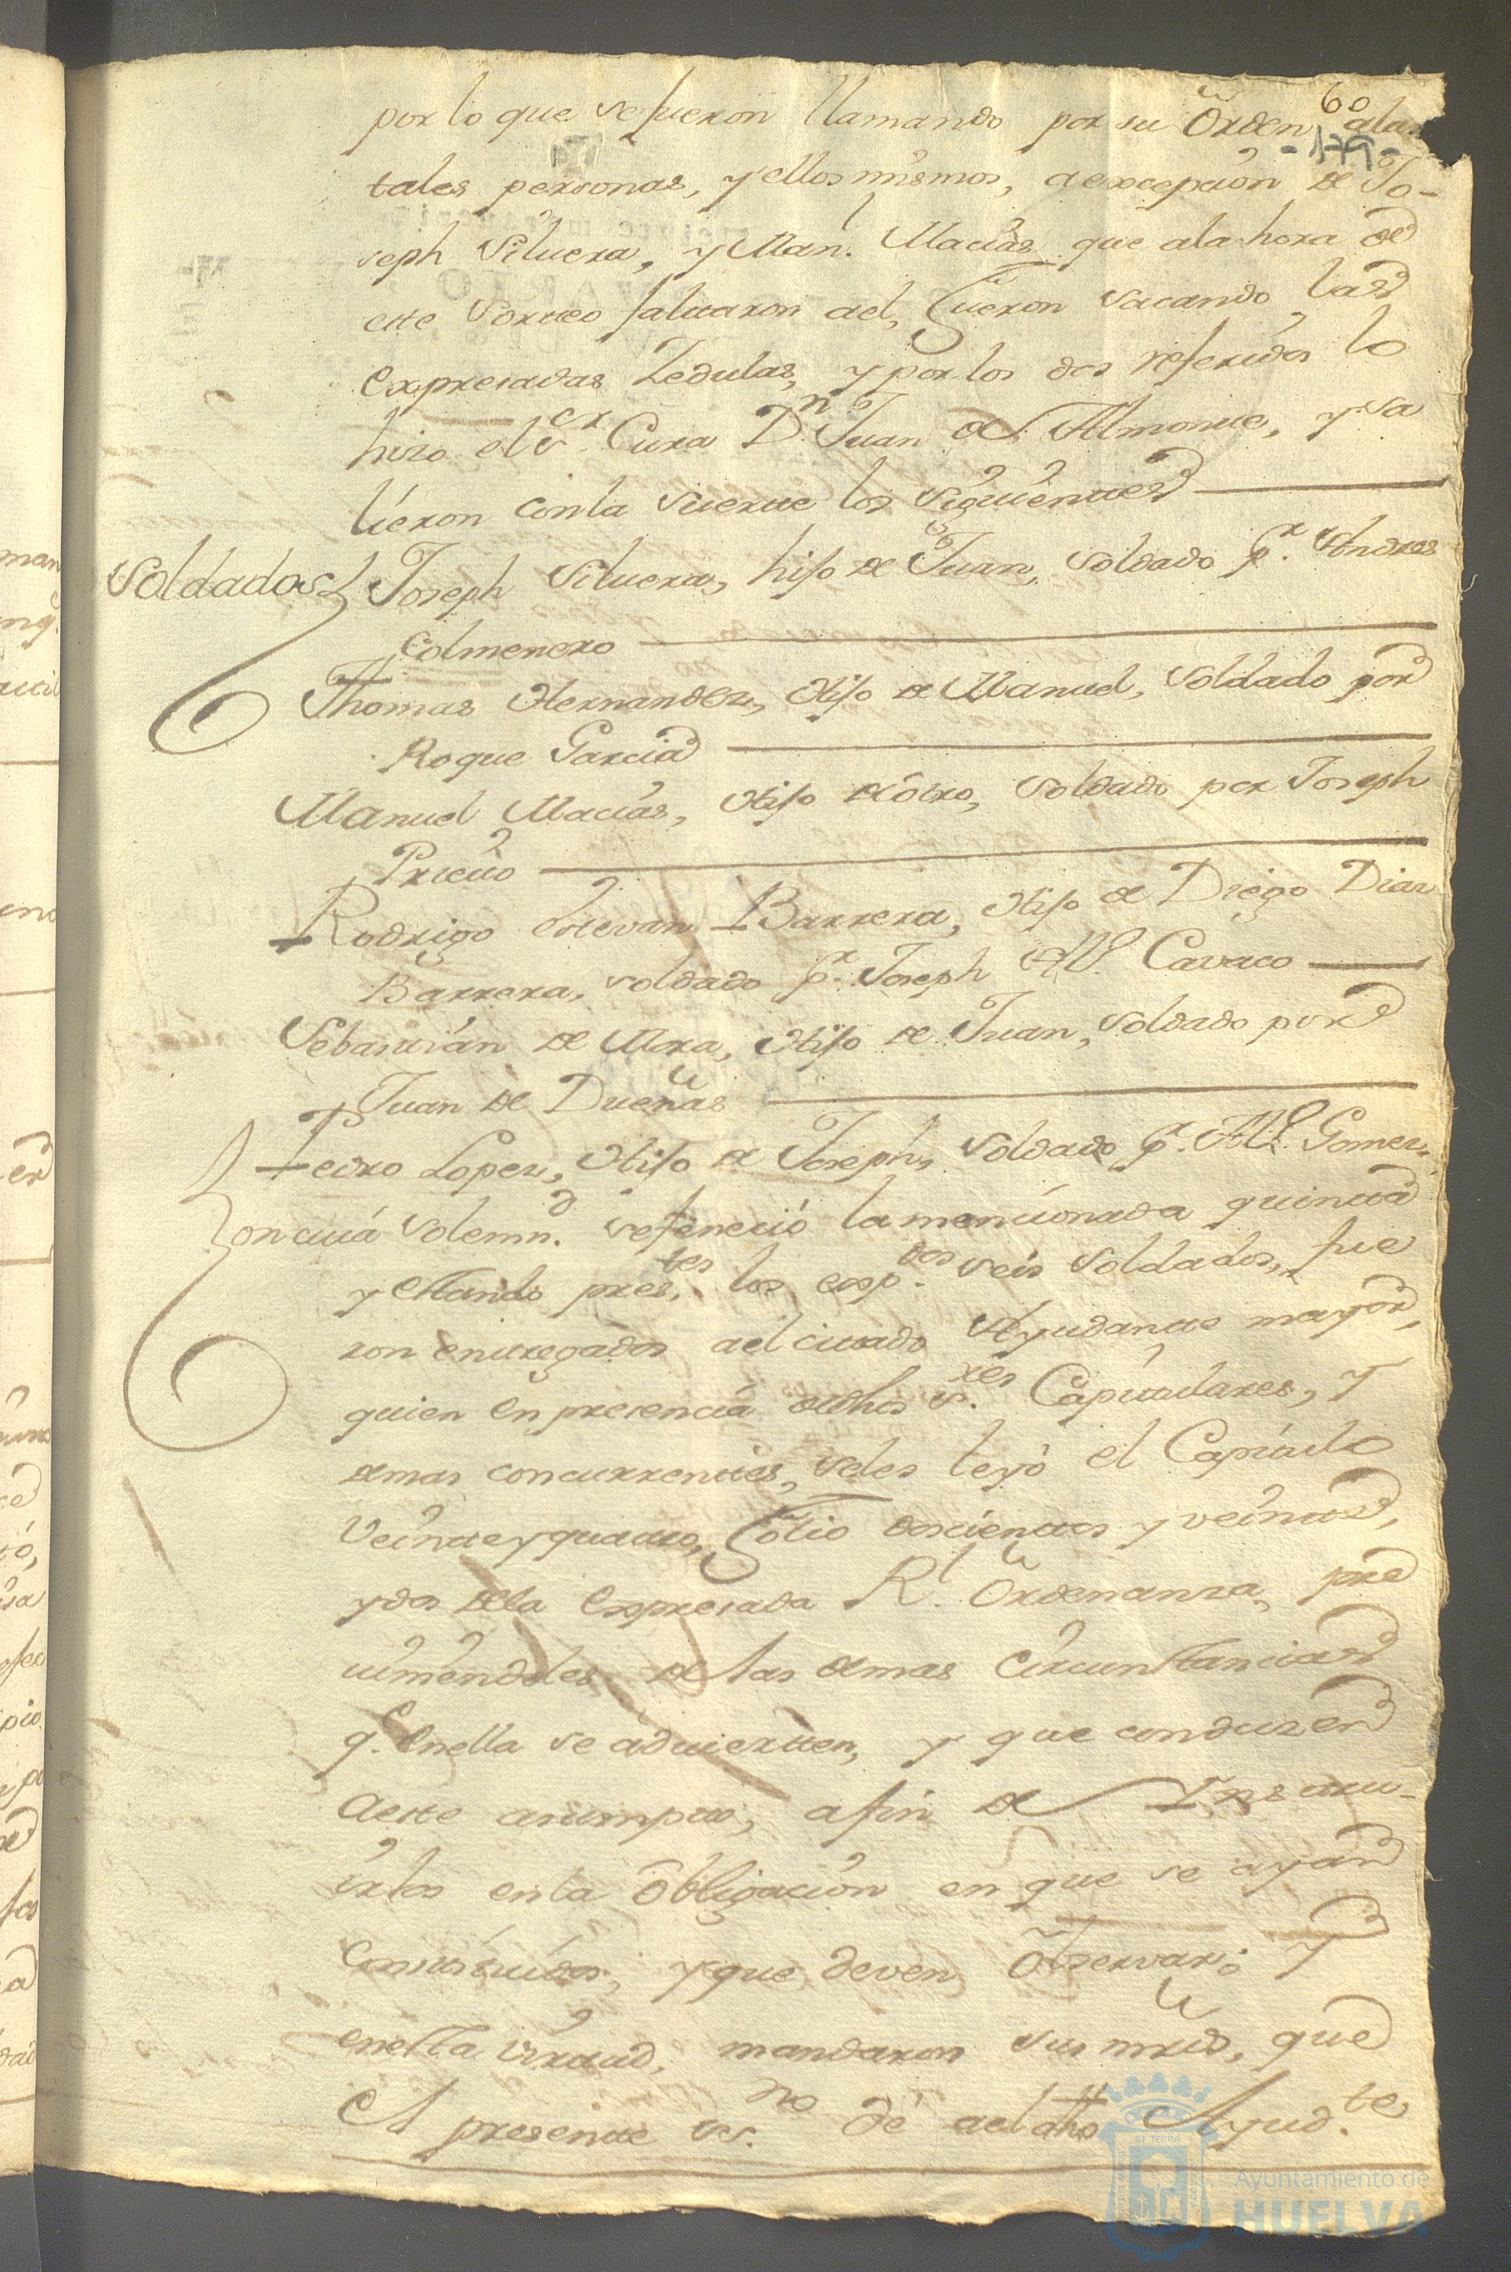 60
-179-
por lo que se fueron llamando por su Orden a la
tales personas, y ellos mismos, a excepcion de Jo-
seph Silvera, y Man.l Macias que a la hora de
este Sorteo faltaron ael, fueron sacando las
expresadas Zedulas, y por los dos referidos lo
hizo el Sr. Cura Dn. Juan de Almonte, y sa
lieron con la suerte los siguientes
Soldados Joseph Silvera, hijo de Juan, Soldado pr. Andres
Colmenero
Thomas Hernandez, Hijo de Manuel, Soldado por
Roque Garcia
Manuel Macias, Hijo de otro, Soldado por Joseph
Prieto
Rodrigo Estevan Barrera, Hijo de Diego Diaz
Barrera, soldado pr. Joseph Al. Cavaco
Sebastian de Mora, Hijo de Juan, Soldado por
Juan de Dueñas
Pedro Lopez, Hijo de Joseph, Soldado pr. Al. Gomez
Con cuia Solemn.d se feneció la mencionada quinta
y estando pres.tes los exp.dos seis Soldados, fue
ron entregados ael citado Ayudante mayor,
quien en presencia de dhos S.res Capitulares, y
demas concurrentes, se les leyó el Capitulo
Veinte y quatro, folio doscientos y veinte,
y dos de la expresada R.l Ordenanza, pre
viniendoles de las demas circunstancias
q.e en ella se advierten, y que conduzen
a este asumpto, a fin de Instru-
irlos en la Obligacion en que se ayan
Constituidos, y que deven Observar; Y
en esta virtud, mandaron sus mrds, que
el presente es.no dé ael dho Ayud.te
Ayuntamiento de
HUELVA